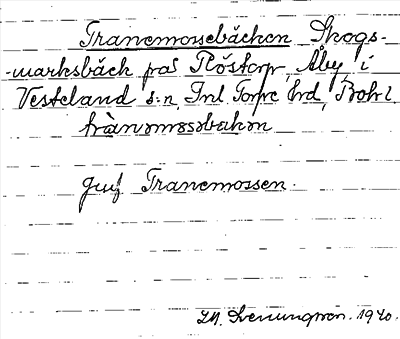 Tranemossebäcken Skogs-
-marksbäck på Röstorp, Åby, i
Vesteland s:n, Inl. Torpe hrd, Bohl.
trànomossəbækən
Jmf Tranemossen.
1940.